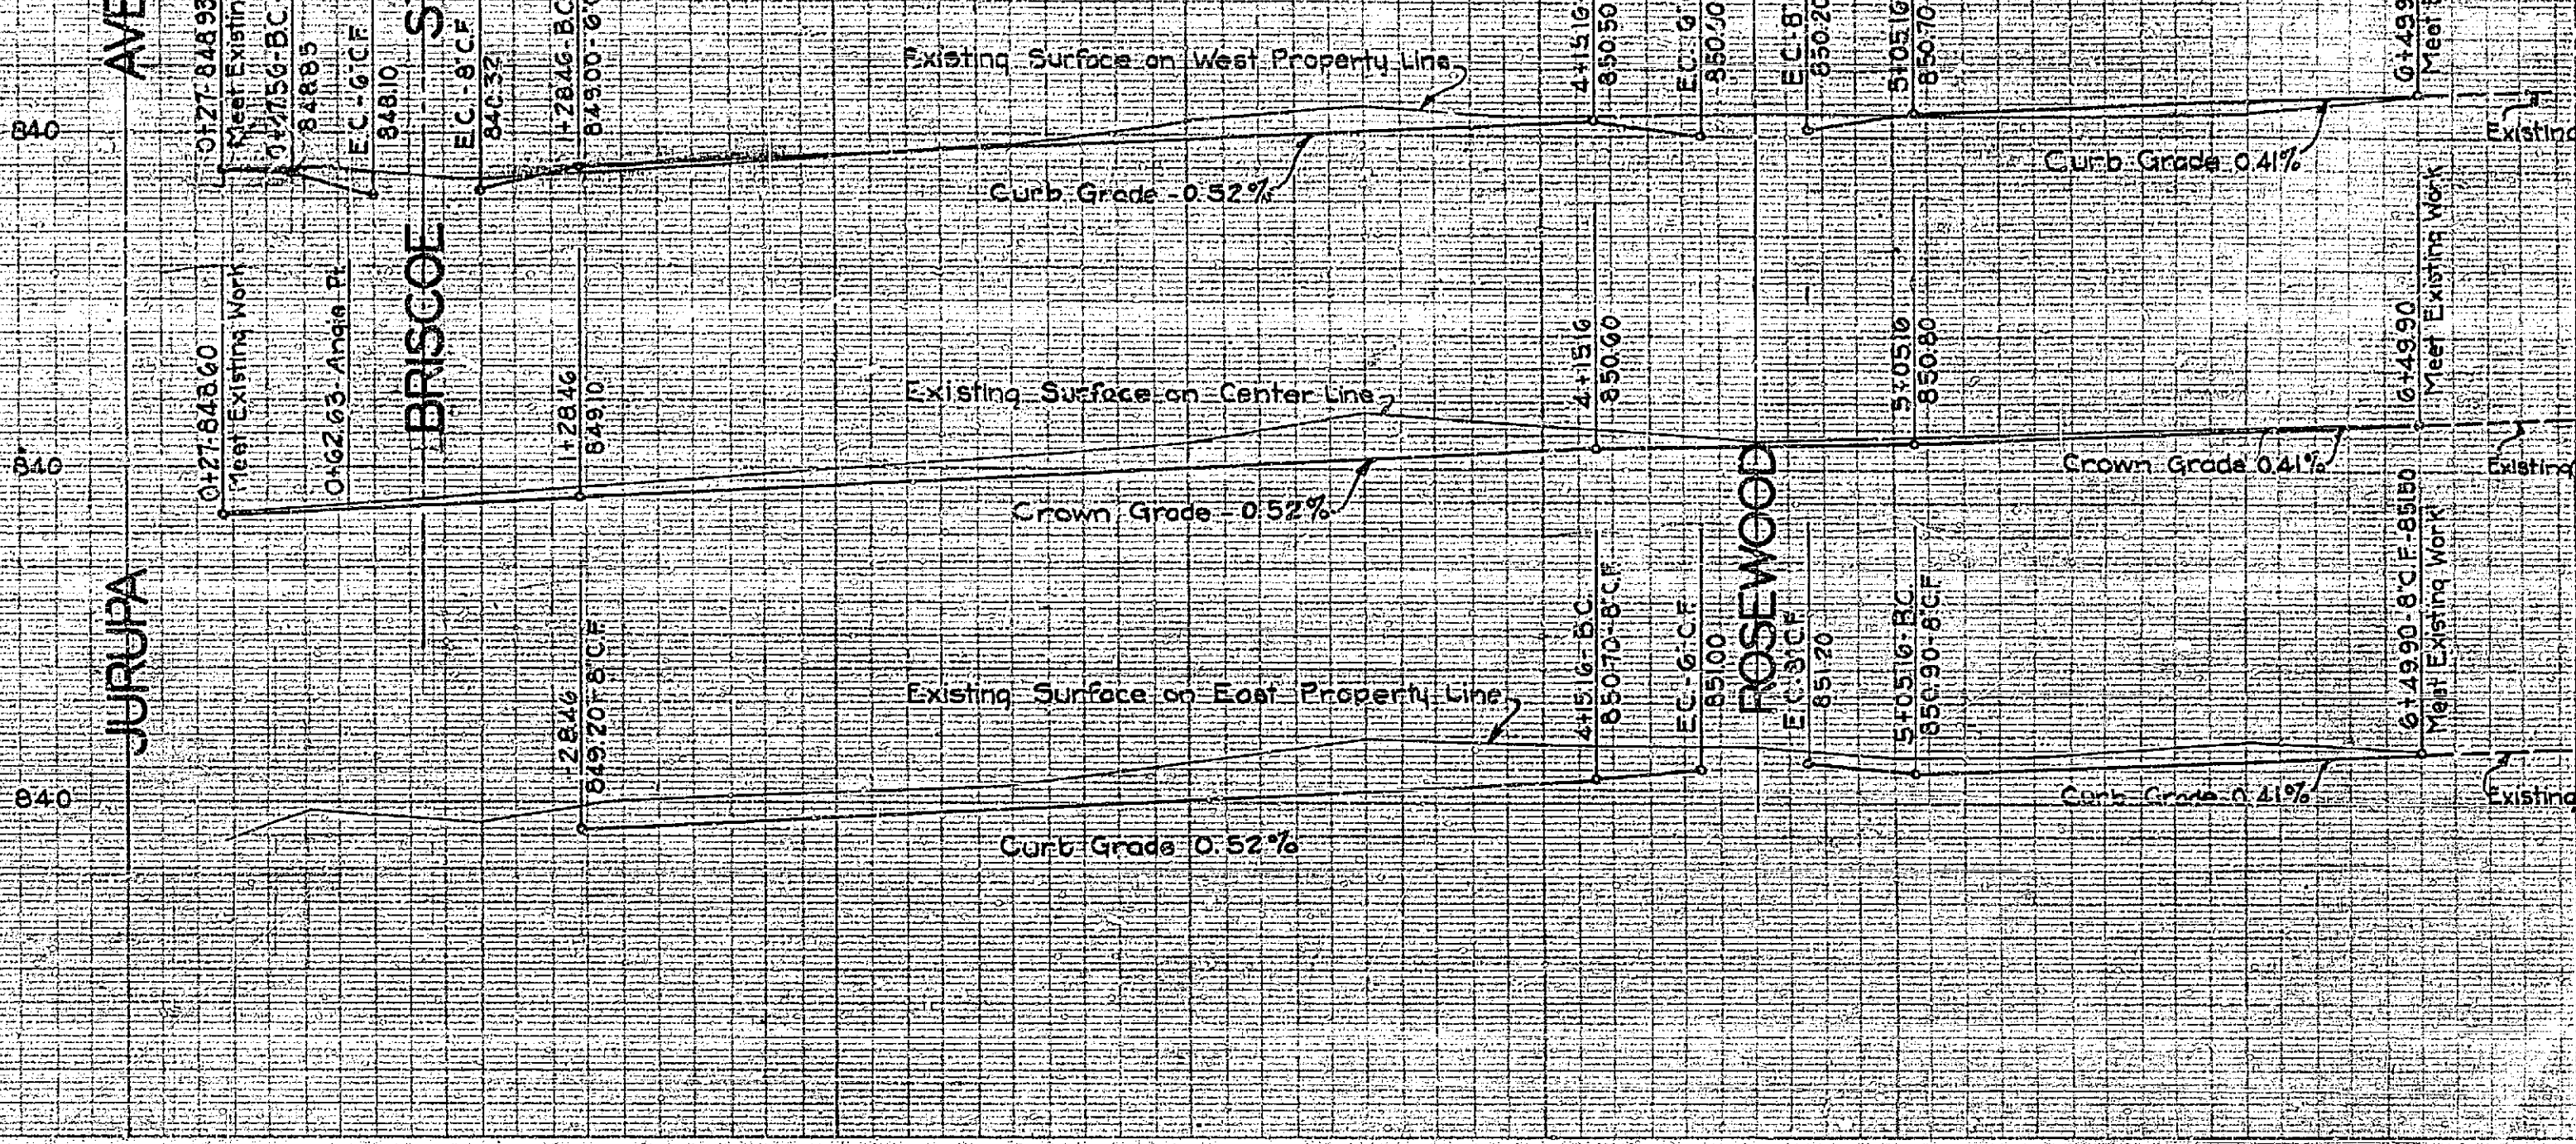 AVE
0+27-848.93
Meet Existing
0+47.56-B.C.
848.85
EC.-6"C.F.
848.10
E.C.-8"C.F.
1+28.46-B.C.
849.00-6"
Existing Surface on West Property Line
4+15.16
850.50
EC.-6"
850.00
EC-8"
850.20
5+05.16
850.70
6+4.99
Meet
840
Curb Grade - 0.52%
Curb Grade 0.41%
Existing
0+27-848.60
Meet Existing Work
0+62.63-Angle Pt.
BRISCOE
1+28.46
849.10
Existing Surface on Center Line
4+15.16
850.60
5+05.16
850.80
6+49.90
Meet Existing Work
840
Crown Grade - 0.52%
Crown Grade 0.41%
Existing
JURUPA
+28.46
849.20-8"C.F.
Existing Surface on East Property Line
4+15.16-B.C.
850.70-8"C.F.
EC.-6"C.F.
851.00
ROSEWOOD
EC.-8"C.F.
851.20
5+05.16-B.C.
850.90-8"C.F.
6+49.90-8"C.F.-851.50
Meet Existing Work
840
Curb Grade 0.52%
Curb Grade 0.41%
Existing